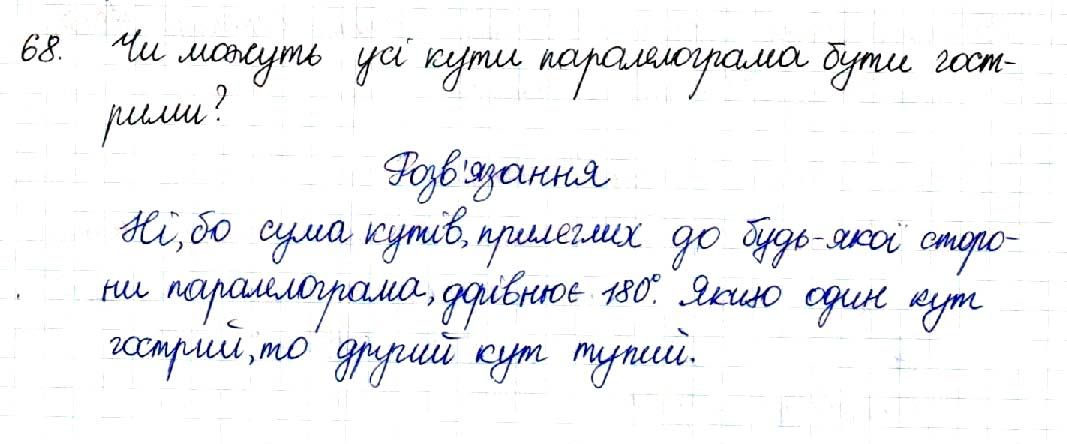 68. Чи можуть усі кути паралелограма бути гост-
рими?
Розв'язання
Ні, бо сума кутів, прилеглих до будь-якої сторо-
ни паралелограма, дорівнює 180°. Якщо один кут
гострий, то другий кут тупий.